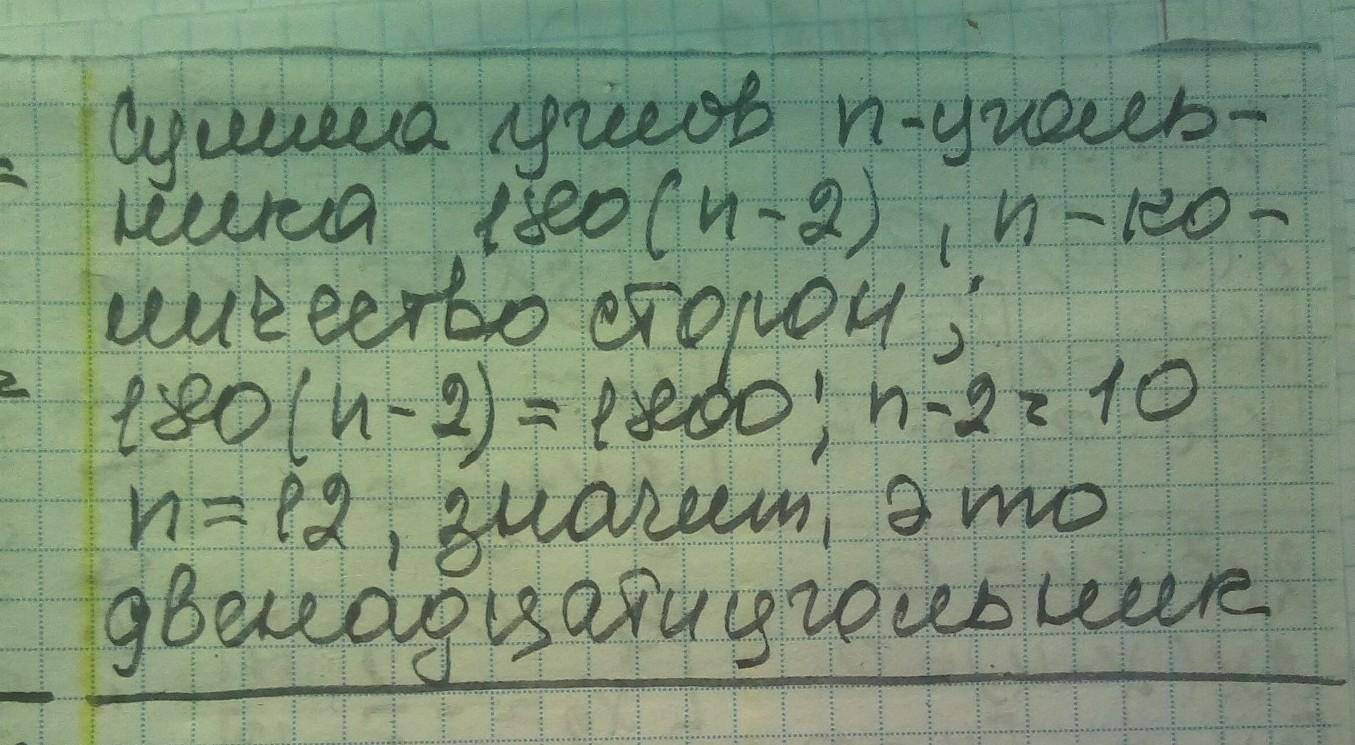 Сумма углов n-уголь-
ника 180(n-2), n-ко-
личество сторон;
180(n-2)=1800; n-2=10
n=12, значит, это
двенадцатиугольник